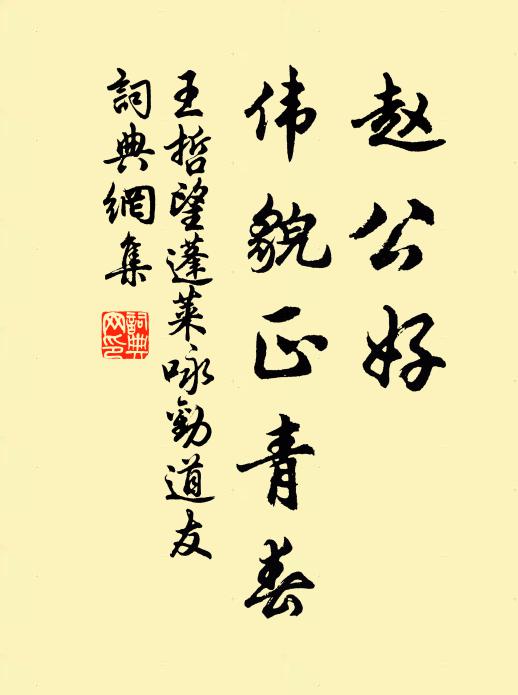 赵公好
伟貌正青春
王哲望蓬莱咏勸道友
詞典網集
詞典网印